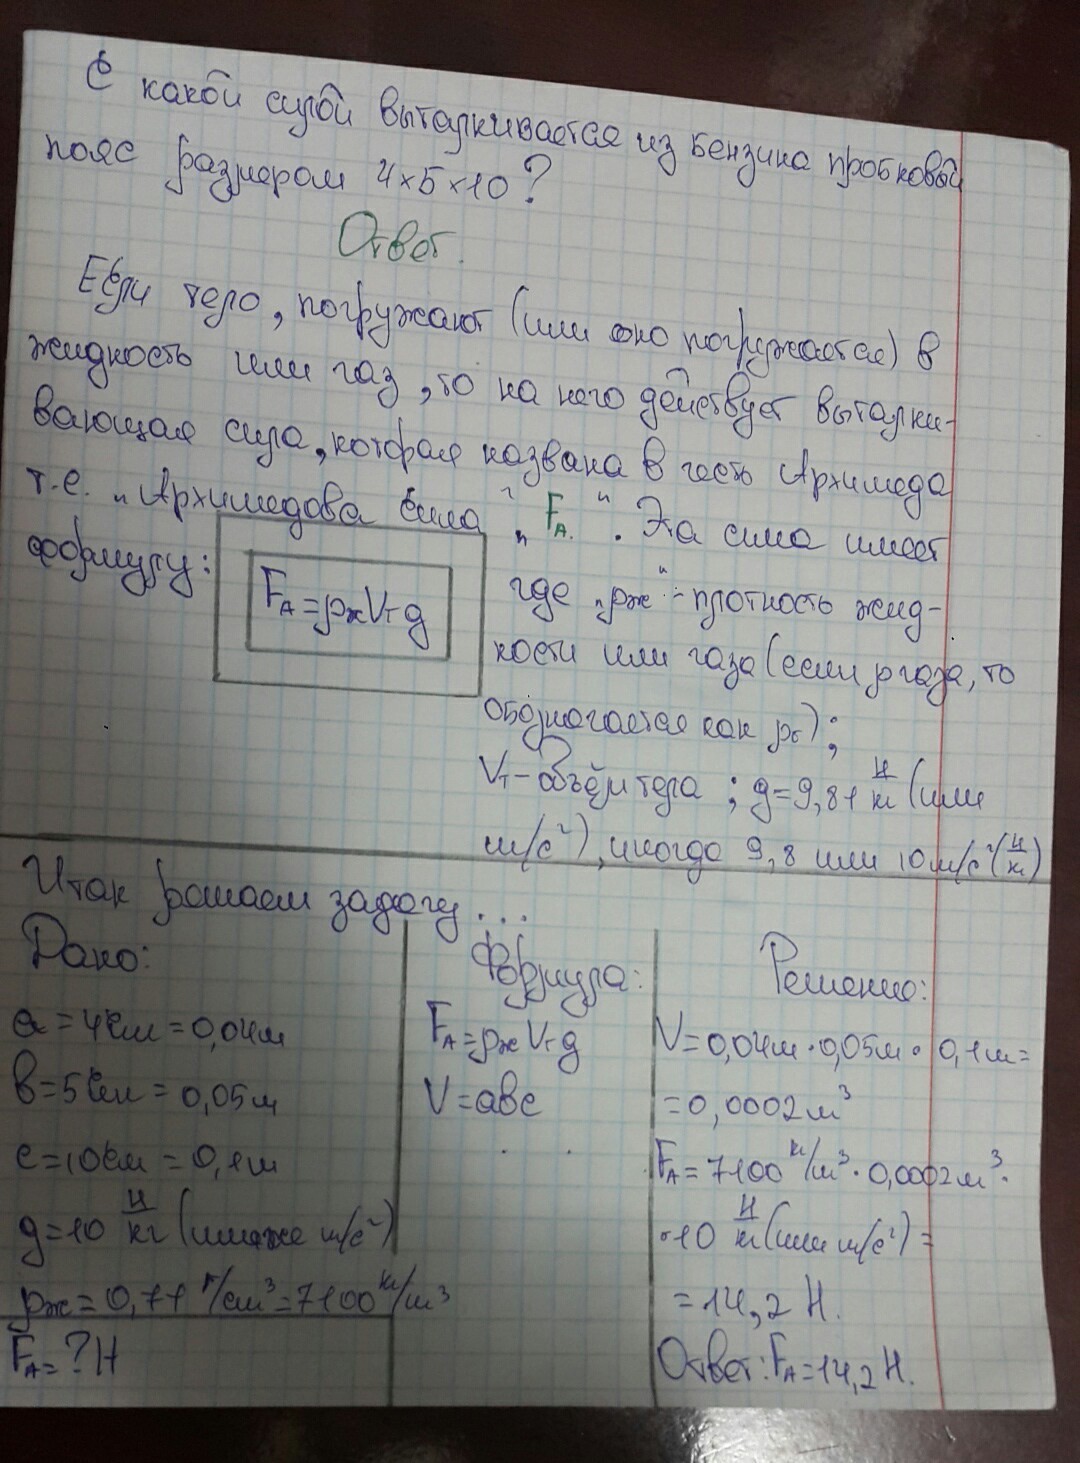 С какой силой выталкивается из бензина пробковый
пояс размером 4×5×10?
Ответ.
Если тело, погружают (или оно погружается) в
жидкость или газ, то на него действует выталки-
вающая сила, которая названа в честь Архимеда
т.е. "Архимедова сила", "FА." . Эта сила имеет
формулу:
FА=ρжVтg
где "ρж" - плотность жид-
кости или газа (если ρ газа, то
обозначается как ρг);
Vт - объём тела ; g=9,81 Н/кг (или
м/с²), иногда 9,8 или 10 м/с² (Н/кг)
Итак решаем задачу...
Дано:
а=4см=0,04м
в=5см=0,05м
с=10см=0,1м
g=10 Н/кг (или же м/с²)
ρж=0,71 г/см³=7100 кг/м³
FА=?Н
Формула:
FА=ρжVтg
V=авс
Решение:
V=0,04м·0,05м·0,1м=
=0,0002м³
FА=7100 кг/м³·0,0002м³·
·10 Н/кг (или м/с²)=
=14,2 Н.
Ответ: FА=14,2Н.